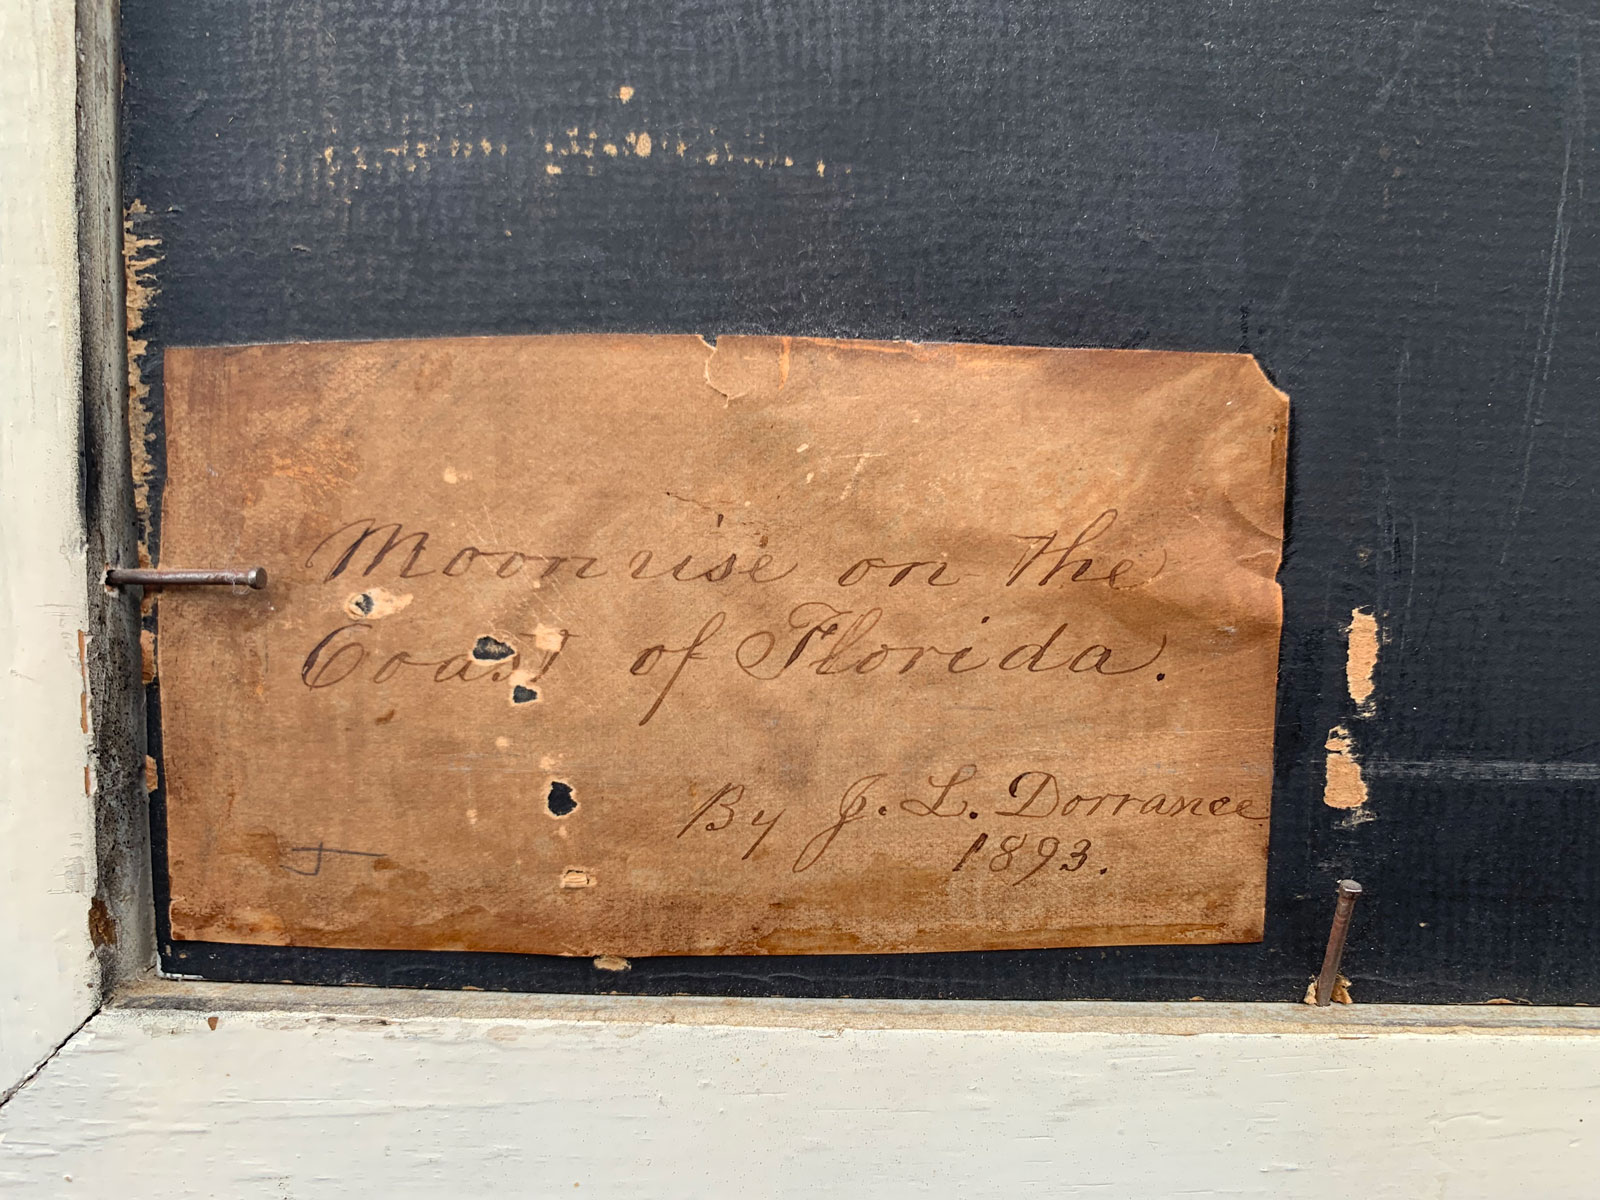 Moonrise on the
Coast of Florida.
By J. L. Dorrance
1893.